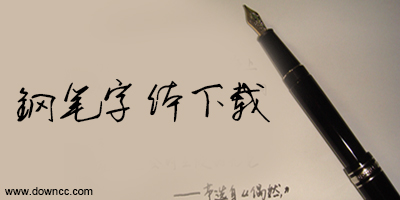 钢笔字体下载
——李造自《偶然》
www.downcc.com